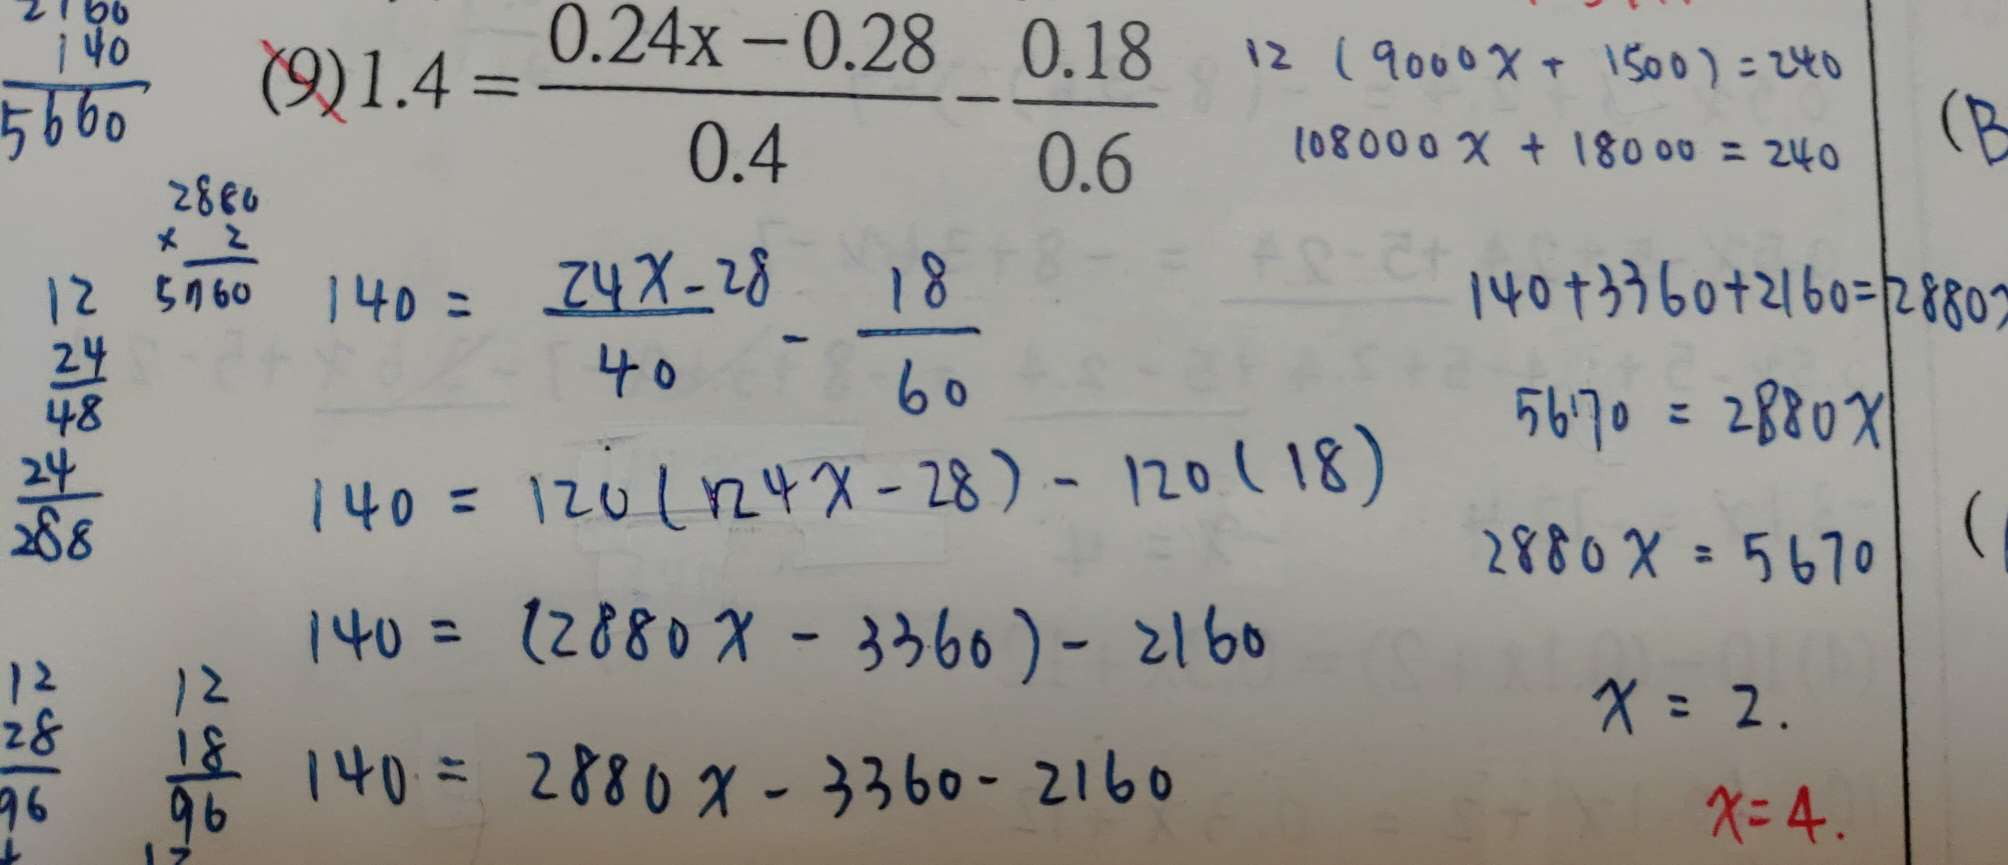 2160
140
5660
(9) 1.4 = \frac{0.24x - 0.28}{0.4} - \frac{0.18}{0.6}
12 (9000x + 1500) = 240
108000x + 18000 = 240
(B
2880
× 2
5760
12
24
48
24
288
140 = \frac{24x - 28}{40} - \frac{18}{60}
140 = 120(24x - 28) - 120(18)
140 = (2880x - 3360) - 2160
140 = 2880x - 3360 - 2160
140 + 3360 + 2160 = 2880x
5670 = 2880x
2880x = 5670
x = 2.
x = 4.
(
12
28
96
12
18
96
12